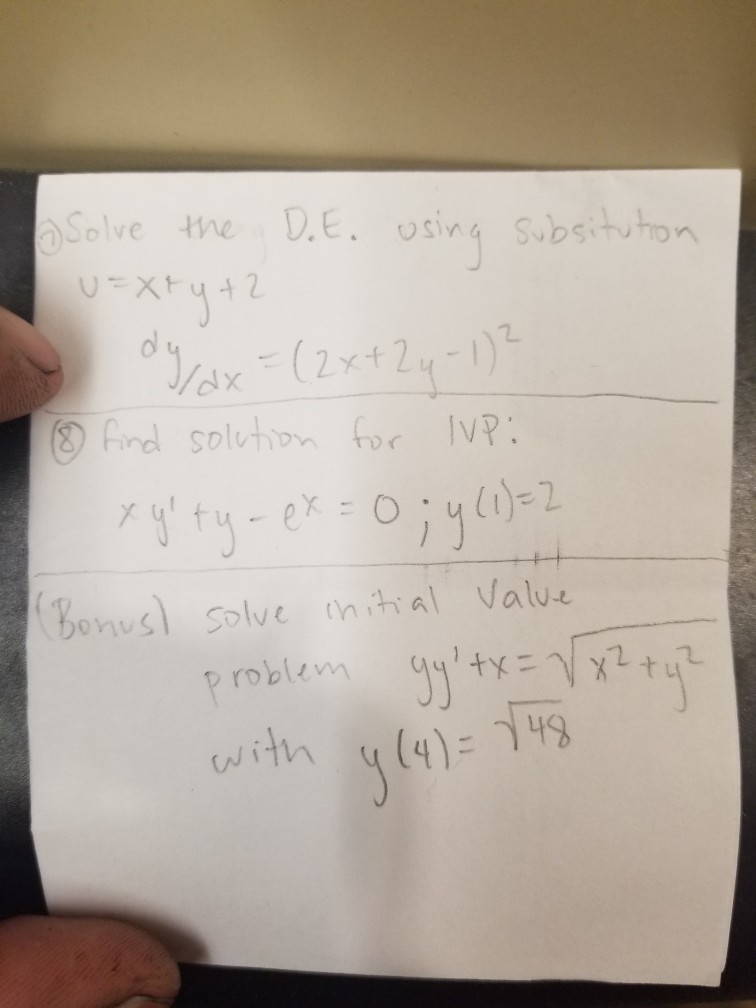 ⑦ Solve the D.E. using subsitution
u=x+y+2
dy/dx = (2x+2y-1)²
⑧ find solution for IVP:
xy' +y - eˣ = 0 ; y(1)=2
(Bonus) solve initial value
problem yy' +x = √x²+y²
with y(4) = √48